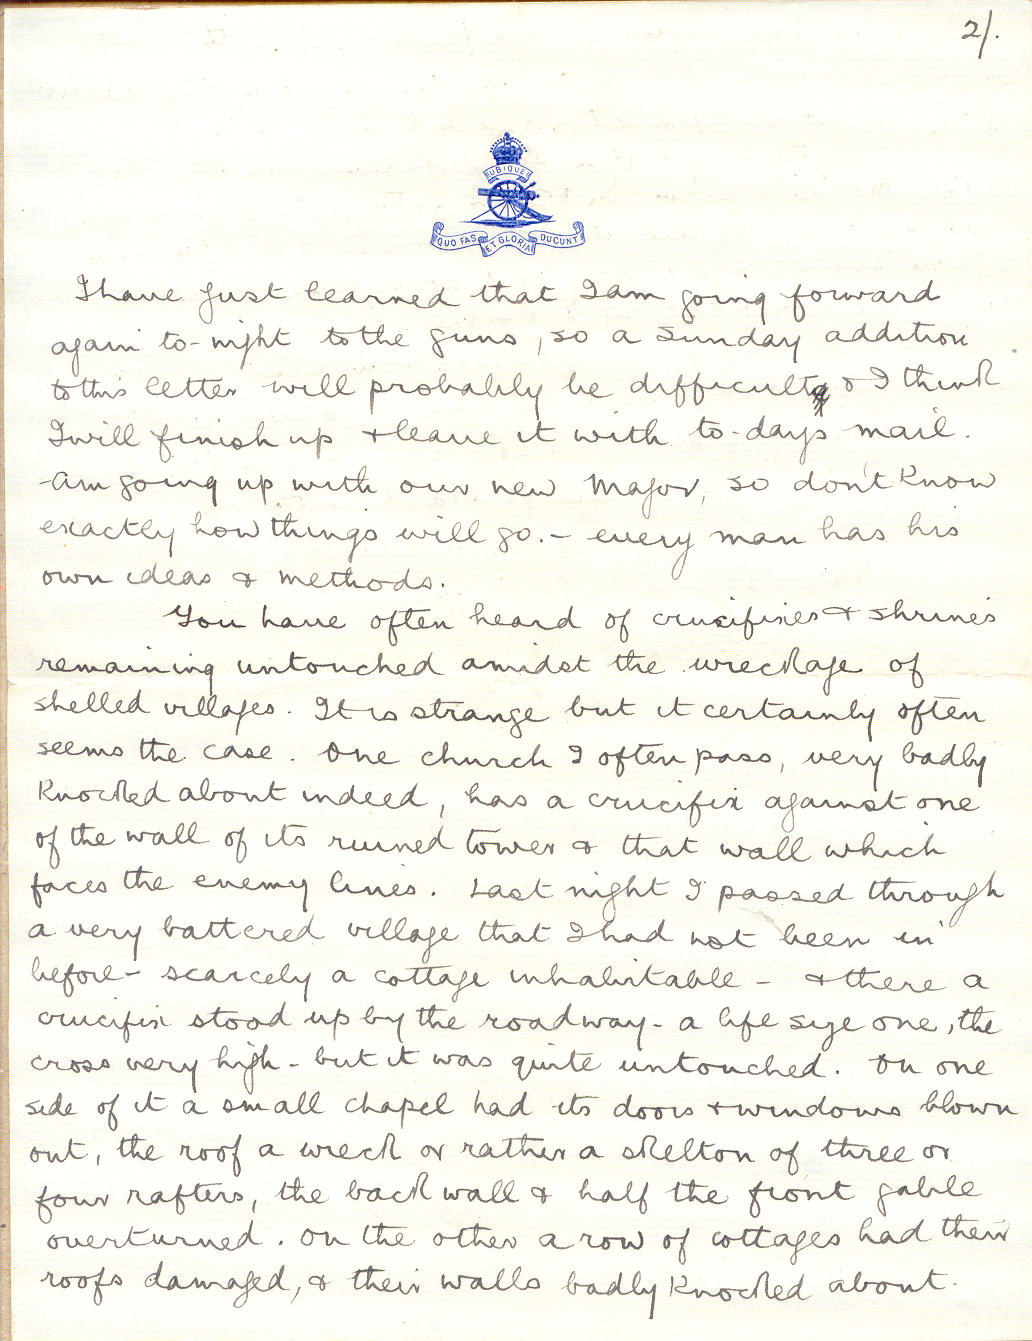 2/.
UBIQUE
QUO FAS ET GLORIA DUCUNT
I have just learned that I am going forward
again to-night to the guns, so a Sunday addition
to this letter will probably be difficult & I think
I will finish up & leave it with to-days mail.
-Am going up with our new Major, so don't know
exactly how things will go. - every man has his
own ideas & methods.
You have often heard of crucifixes & shrines
remaining untouched amidst the wreckage of
shelled villages. It is strange but it certainly often
seems the case. One church I often pass, very badly
knocked about indeed, has a crucifix against one
of the wall of its ruined tower & that wall which
faces the enemy lines. Last night I passed through
a very battered village that I had not been in
before - scarcely a cottage inhabitable - & there a
crucifix stood up by the roadway - a life size one, the
cross very high - but it was quite untouched. On one
side of it a small chapel had its doors & windows blown
out, the roof a wreck or rather a skelton of three or
four rafters, the back wall & half the front gable
overturned. On the other a row of cottages had their
roofs damaged, & their walls badly knocked about.